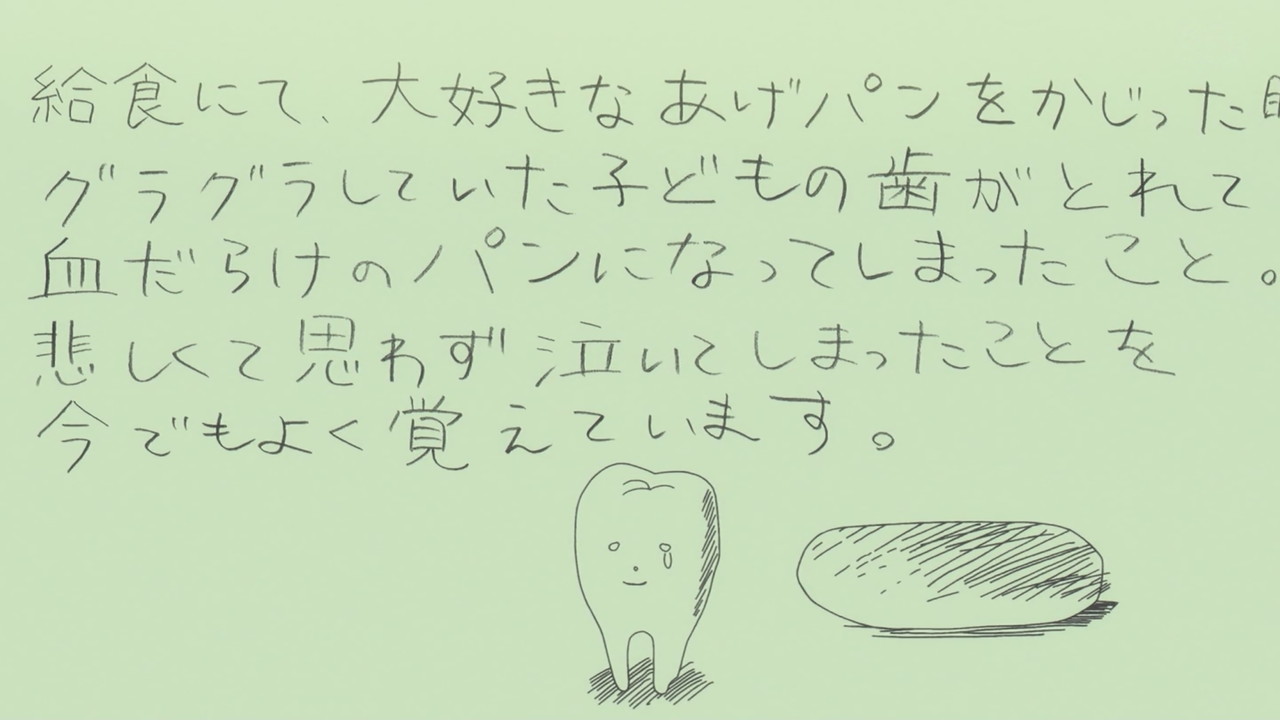 給食にて、大好きなあげパンをかじった
グラグラしていた子どもの歯がとれて
血だらけのパンになってしまったこと。
悲しくて思わず泣いてしまったことを
今でもよく覚えています。